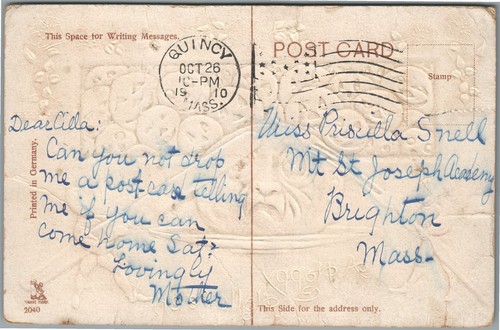 This Space for Writing Messages.
POST CARD
QUINCY
OCT 26
-PM
19 10
MASS.
Stamp
Dear Cilla:
Can you not drop
me a post-card telling
me if you can
come home Sat?
Lovingly
Mother
Miss Priscilla Snell
Mt St Joseph Academy
Brighton
Mass-
Printed in Germany.
2040
This Side for the address only.